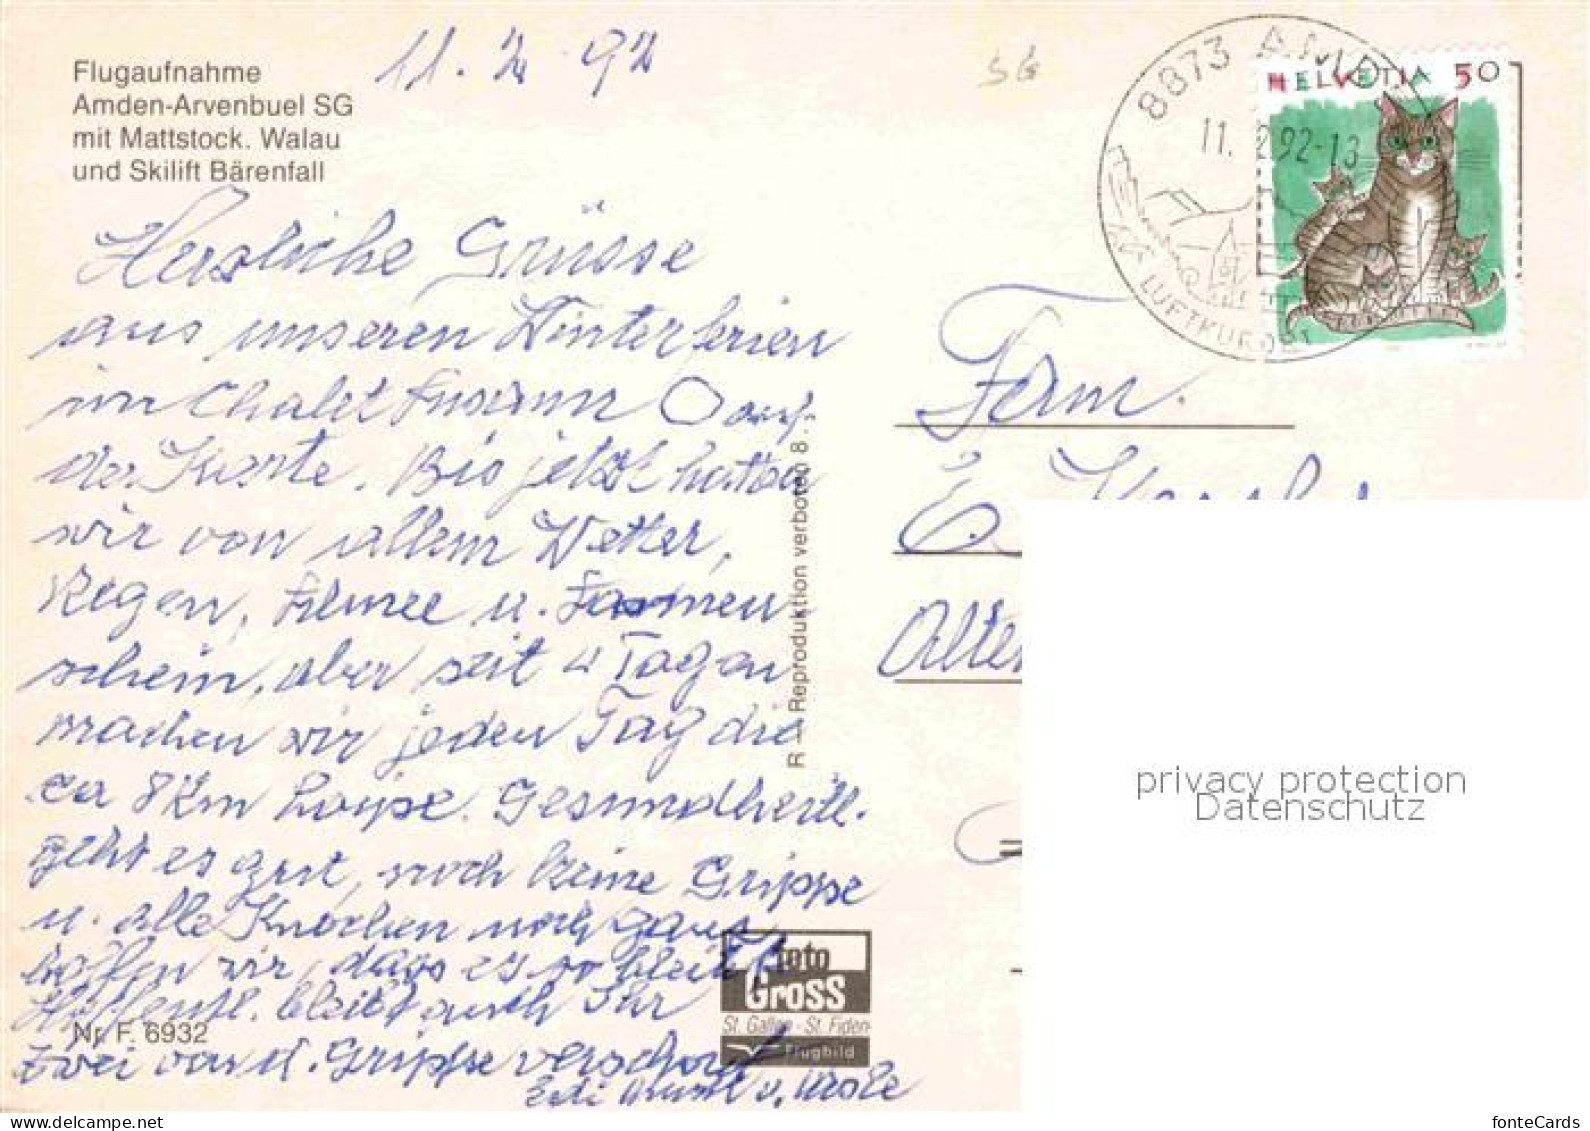 Flugaufnahme
Amden-Arvenbuel SG
mit Mattstock. Walau
und Skilift Bärenfall
11. 2 92
SG
8873 AMD
11. 2.92-13
LUFTKURORT
HELVETIA 50
Herzliche Grüsse
aus unseren Winterferien
im Chalet auf
der Karte. Bis jetzt hatten
wir von allem Wetter,
Regen, Schnee u. Sonnen
schein, aber seit 4 Tagen
machen wir jeden Tag die
ca 8 Km Loipe. Gesundheitl.
geht es gut, noch keine Grippe
u. alle Knochen noch ganz,
hoffen wir, dass es so bleibt
Hoffentl. bleibt auch Ihr
zwei von d. Grippe verschont
Edi u.
Fam.
E.
Alten
R — Reproduktion verboten 8.
foto
Gross
St. Gallen - St. Fiden
Flugbild
Nr. F. 6932
privacy protection
Datenschutz
www.delcampe.net
fonteCards